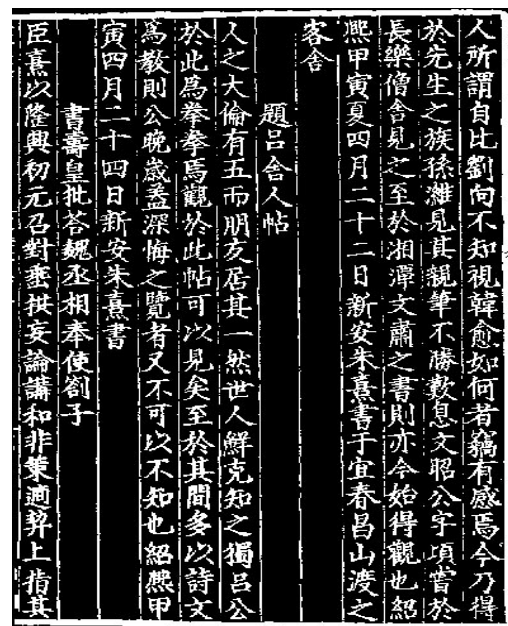 人所謂自比劉向不知視韓愈如何者竊有感焉今乃得
於先生之族孫濰見其親筆不勝歎息文昭公字頃嘗於
長樂僧舍見之至於湘潭文肅之書則亦今始得觀也紹
熙甲寅夏四月二十二日新安朱熹書于宜春昌山渡之
客舍
題呂舍人帖
人之大倫有五而朋友居其一然世人鮮克知之獨呂公
於此爲拳拳焉觀於此帖可以見矣至於其間多以詩文
爲教則公晚歲蓋深悔之覽者又不可以不知也紹熙甲
寅四月二十四日新安朱熹書
書壽皇批答魏丞相奉使劄子
臣熹以隆興初元召對垂拱妄論講和非策適契上指其